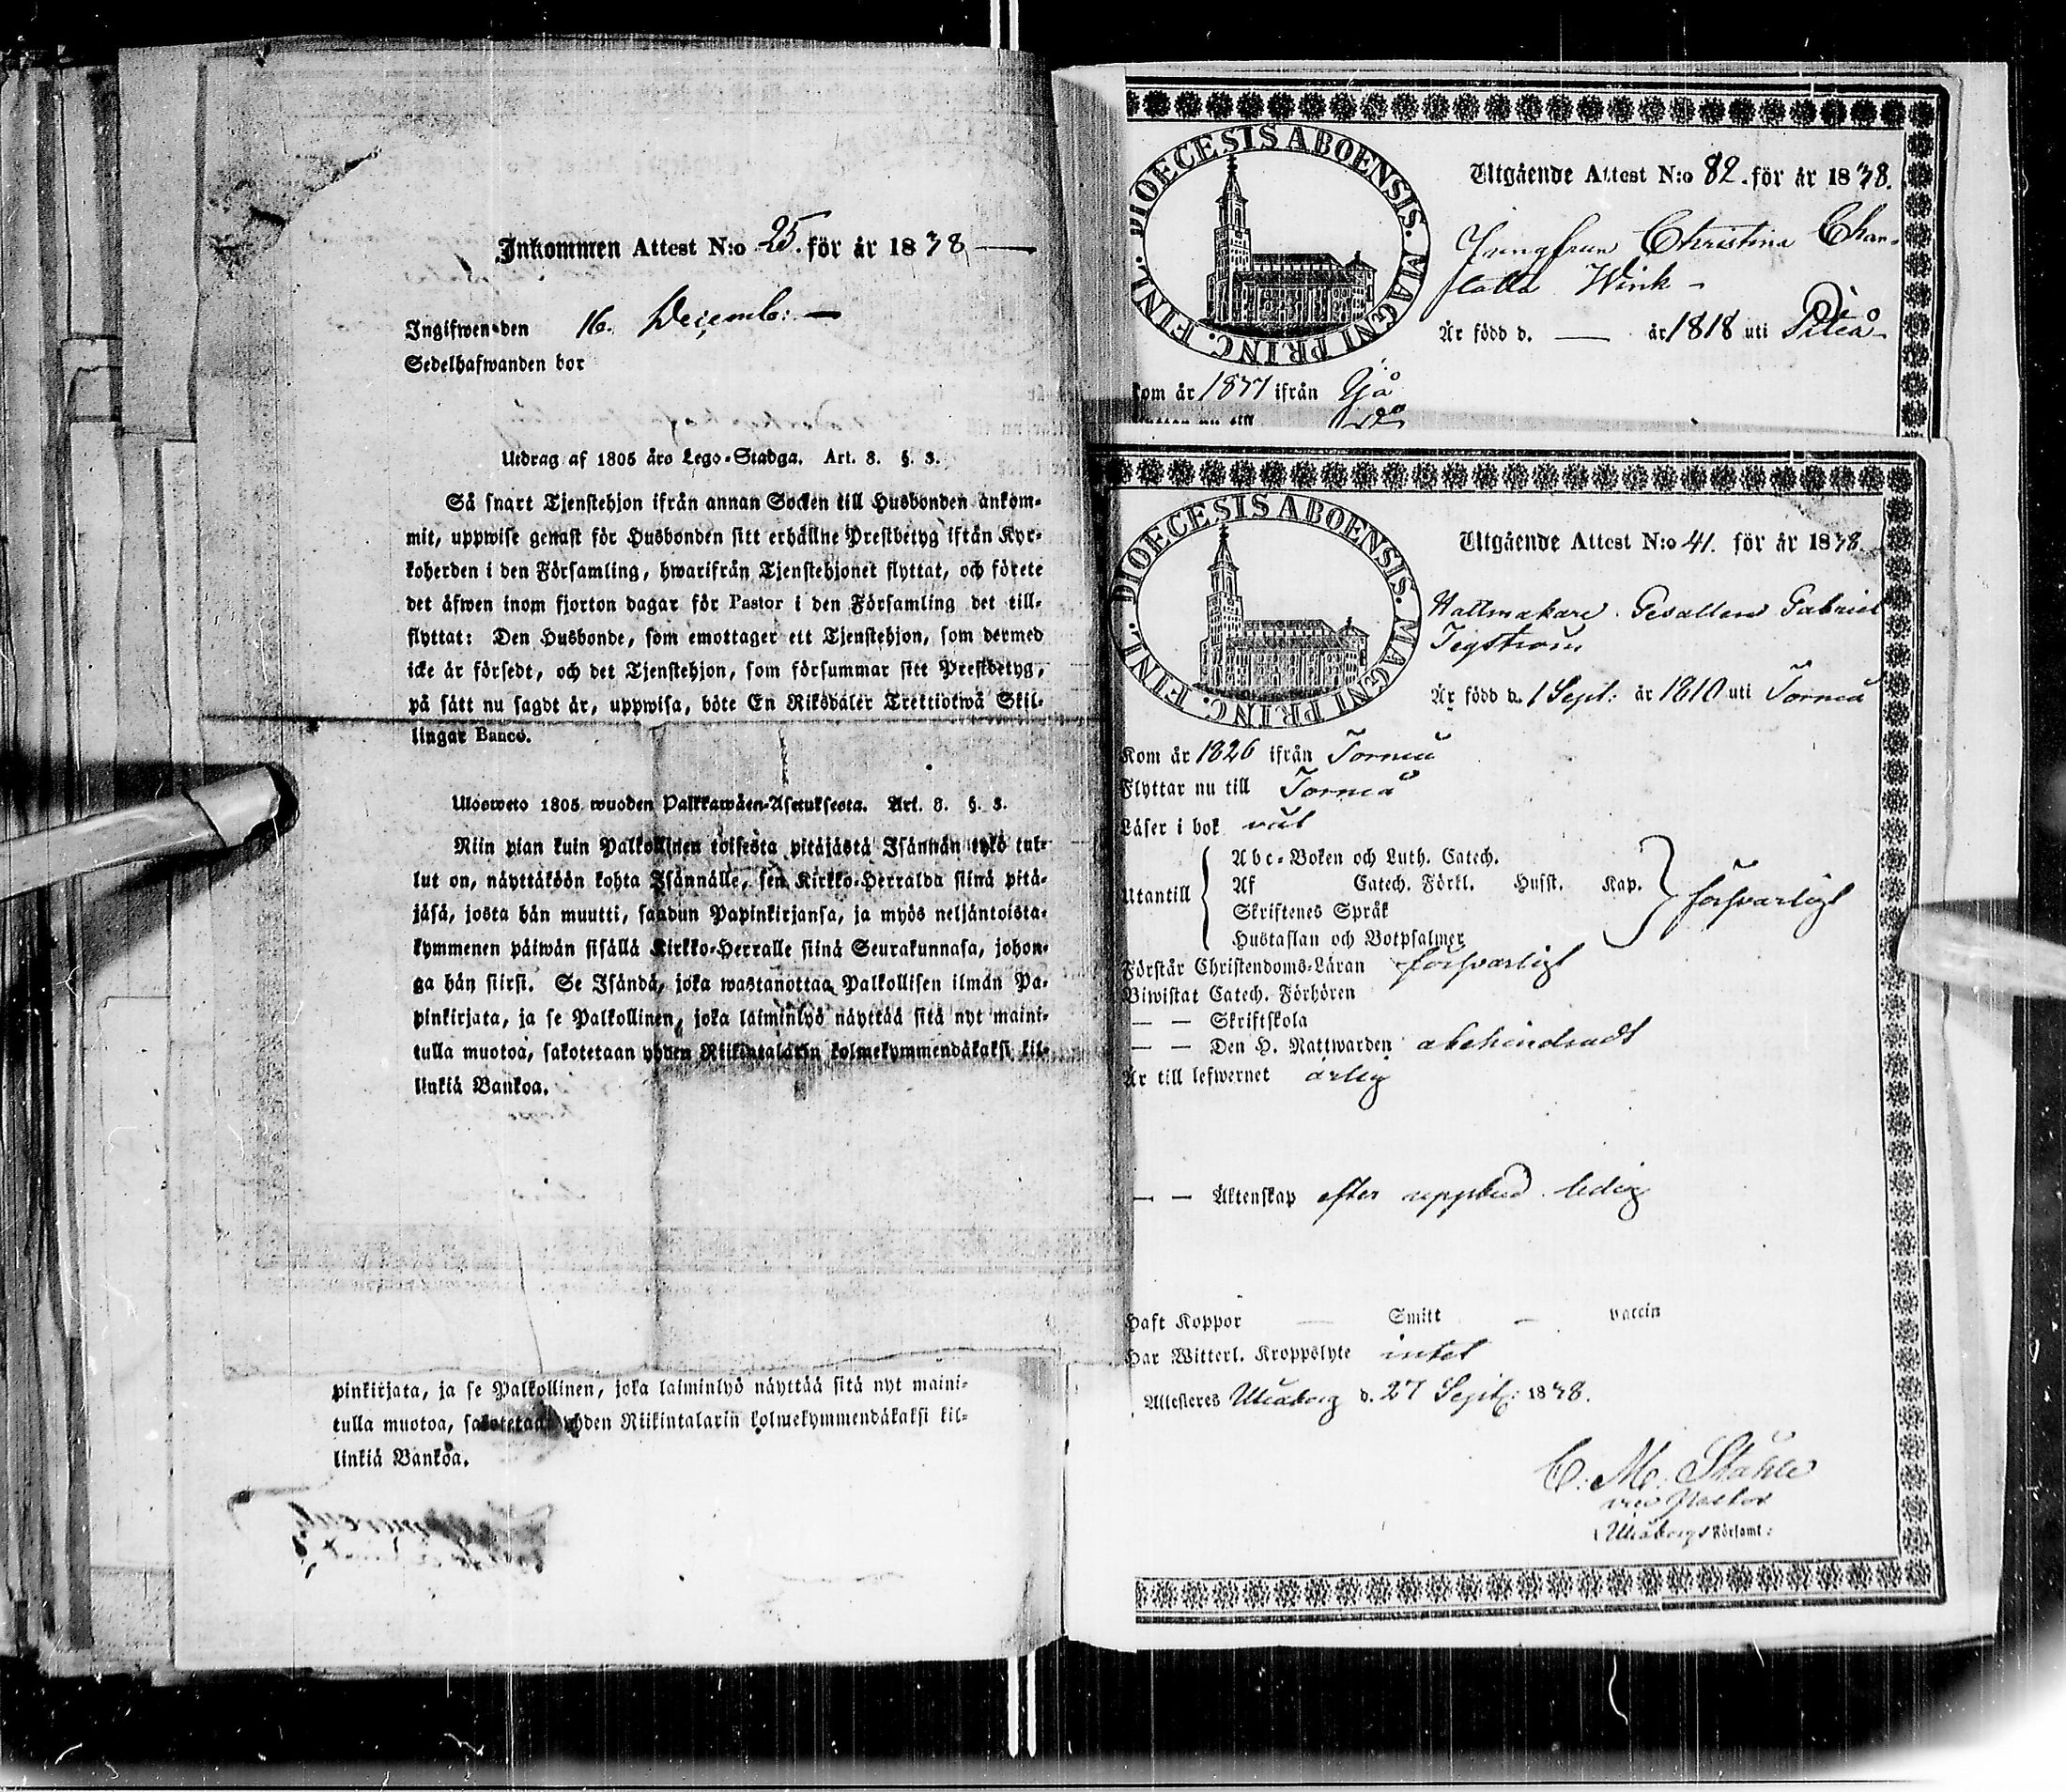 Inkommen Attest N:o 25. för år 1838
Ingifwen den 16. Decemb:
Sedelhafwanden bor
Utdrag af 1805 års Lego-Stadga. Art. 8. §. 3.
Så snart Tjenstehjon ifrån annan Socken till Husbonden ankom-
mit, uppwise genast för Husbonden sitt erhållne Prestbetyg ifrån Kyr-
koherden i den Församling, hwarifrån Tjenstehjonet flyttat, och förete
det äfwen inom fjorton dagar för Pastor i den Församling det till-
flyttat: Den Husbonde, som emottager ett Tjenstehjon, som dermed
icke är försedt, och det Tjenstehjon, som försummar sitt Prestbetyg,
på sätt nu sagdt är, uppwisa, böte En Riksdaler Trettiotwå Skil-
lingar Banco.
Ulosweto 1805 wuoden Palkkawäen-Asetuksesta. Art. 8. §. 3.
Niin pian kuin Palkollinen toisesta pitäjästä Isännän tykö tul-
lut on, näyttäköön kohta Isännälle, sen Kirkko-Herralda siinä pitä-
jäsä, josta hän muutti, saadun Papinkirjansa, ja myös neljäntoista-
kymmenen päiwän sisällä Kirkko-Herralle siinä Seurakunnasa, johon-
ga hän siirsi. Se Isändä, joka wastanottaa Palkollisen ilman Pa-
pinkirjata, ja se Palkollinen, joka laiminlyö näyttää sitä nyt maini-
tulla muotoa, sakotetaan yhden Riikintalarin kolmekymmendäkaksi kil-
linkiä Bankoa.
pinkirjata, ja se Palkollinen, joka laiminlyö näyttää sitä nyt maini-
tulla muotoa, sakotetaan yhden Riikintalarin kolmekymmendäkaksi kil-
linkiä Bankoa.
DIOECESIS ABOENSIS. MAGNI PRINC. FINL.
Utgående Attest N:o 82. för år 1838.
Jungfrun Christina Char-
lotta Wink
Är född d. — år 1818 uti Piteå
kom år 1837 ifrån Ijå
DIOECESIS ABOENSIS. MAGNI PRINC. FINL.
Utgående Attest N:o 41. för år 1838.
Hattmakare Gesällen Gabriel
Tegström
Är född d. 1 Sept: år 1810 uti Torneå
Kom år 1826 ifrån Torneå
Flyttar nu till Torneå
Läser i bok väl
Utantill
Abc-Boken och Luth. Catech.
Af Catech. Förkl. Husst. Kap.
Skriftenes Språk
Hustaflan och Botpsalmer
försvarligt
Förstår Christendoms-Läran försvarligt
Biwistat Catech. Förhören
— — Skriftskola
— — Den H. Nattwarden obehindradt
Är till lefwernet ärlig
— — Äktenskap efter uppbud ledig
Haft Koppor — Smitt — vaccin
Har Witterl. Kroppslyte intet
Attesteres Uleåborg d. 27 Sept: 1838.
C. M. Ståhle
vice Pastor
Uleåborgs Församl: